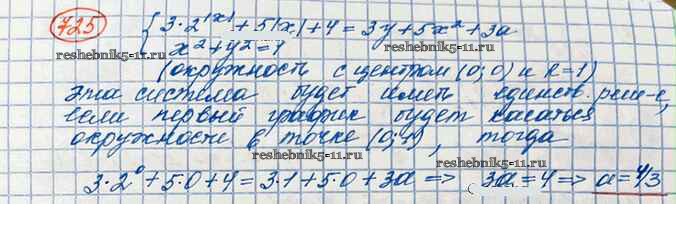 725 { 3·2^|x| + 5|x| + 4 = 3y + 5x² + 3a
x² + y² = 1
www.reshebnik5-11.ru
reshebnik5-11.ru
(окружность с центром (0;0) и R=1)
Эта система будет иметь единств. реш-е,
если первый график будет касаться
окружности в точке (0;1), тогда
reshebnik5-11.ru
www.reshebnik5-11.ru
3·2⁰ + 5·0 + 4 = 3·1 + 5·0 + 3a => 3a = 4 => a = 4/3